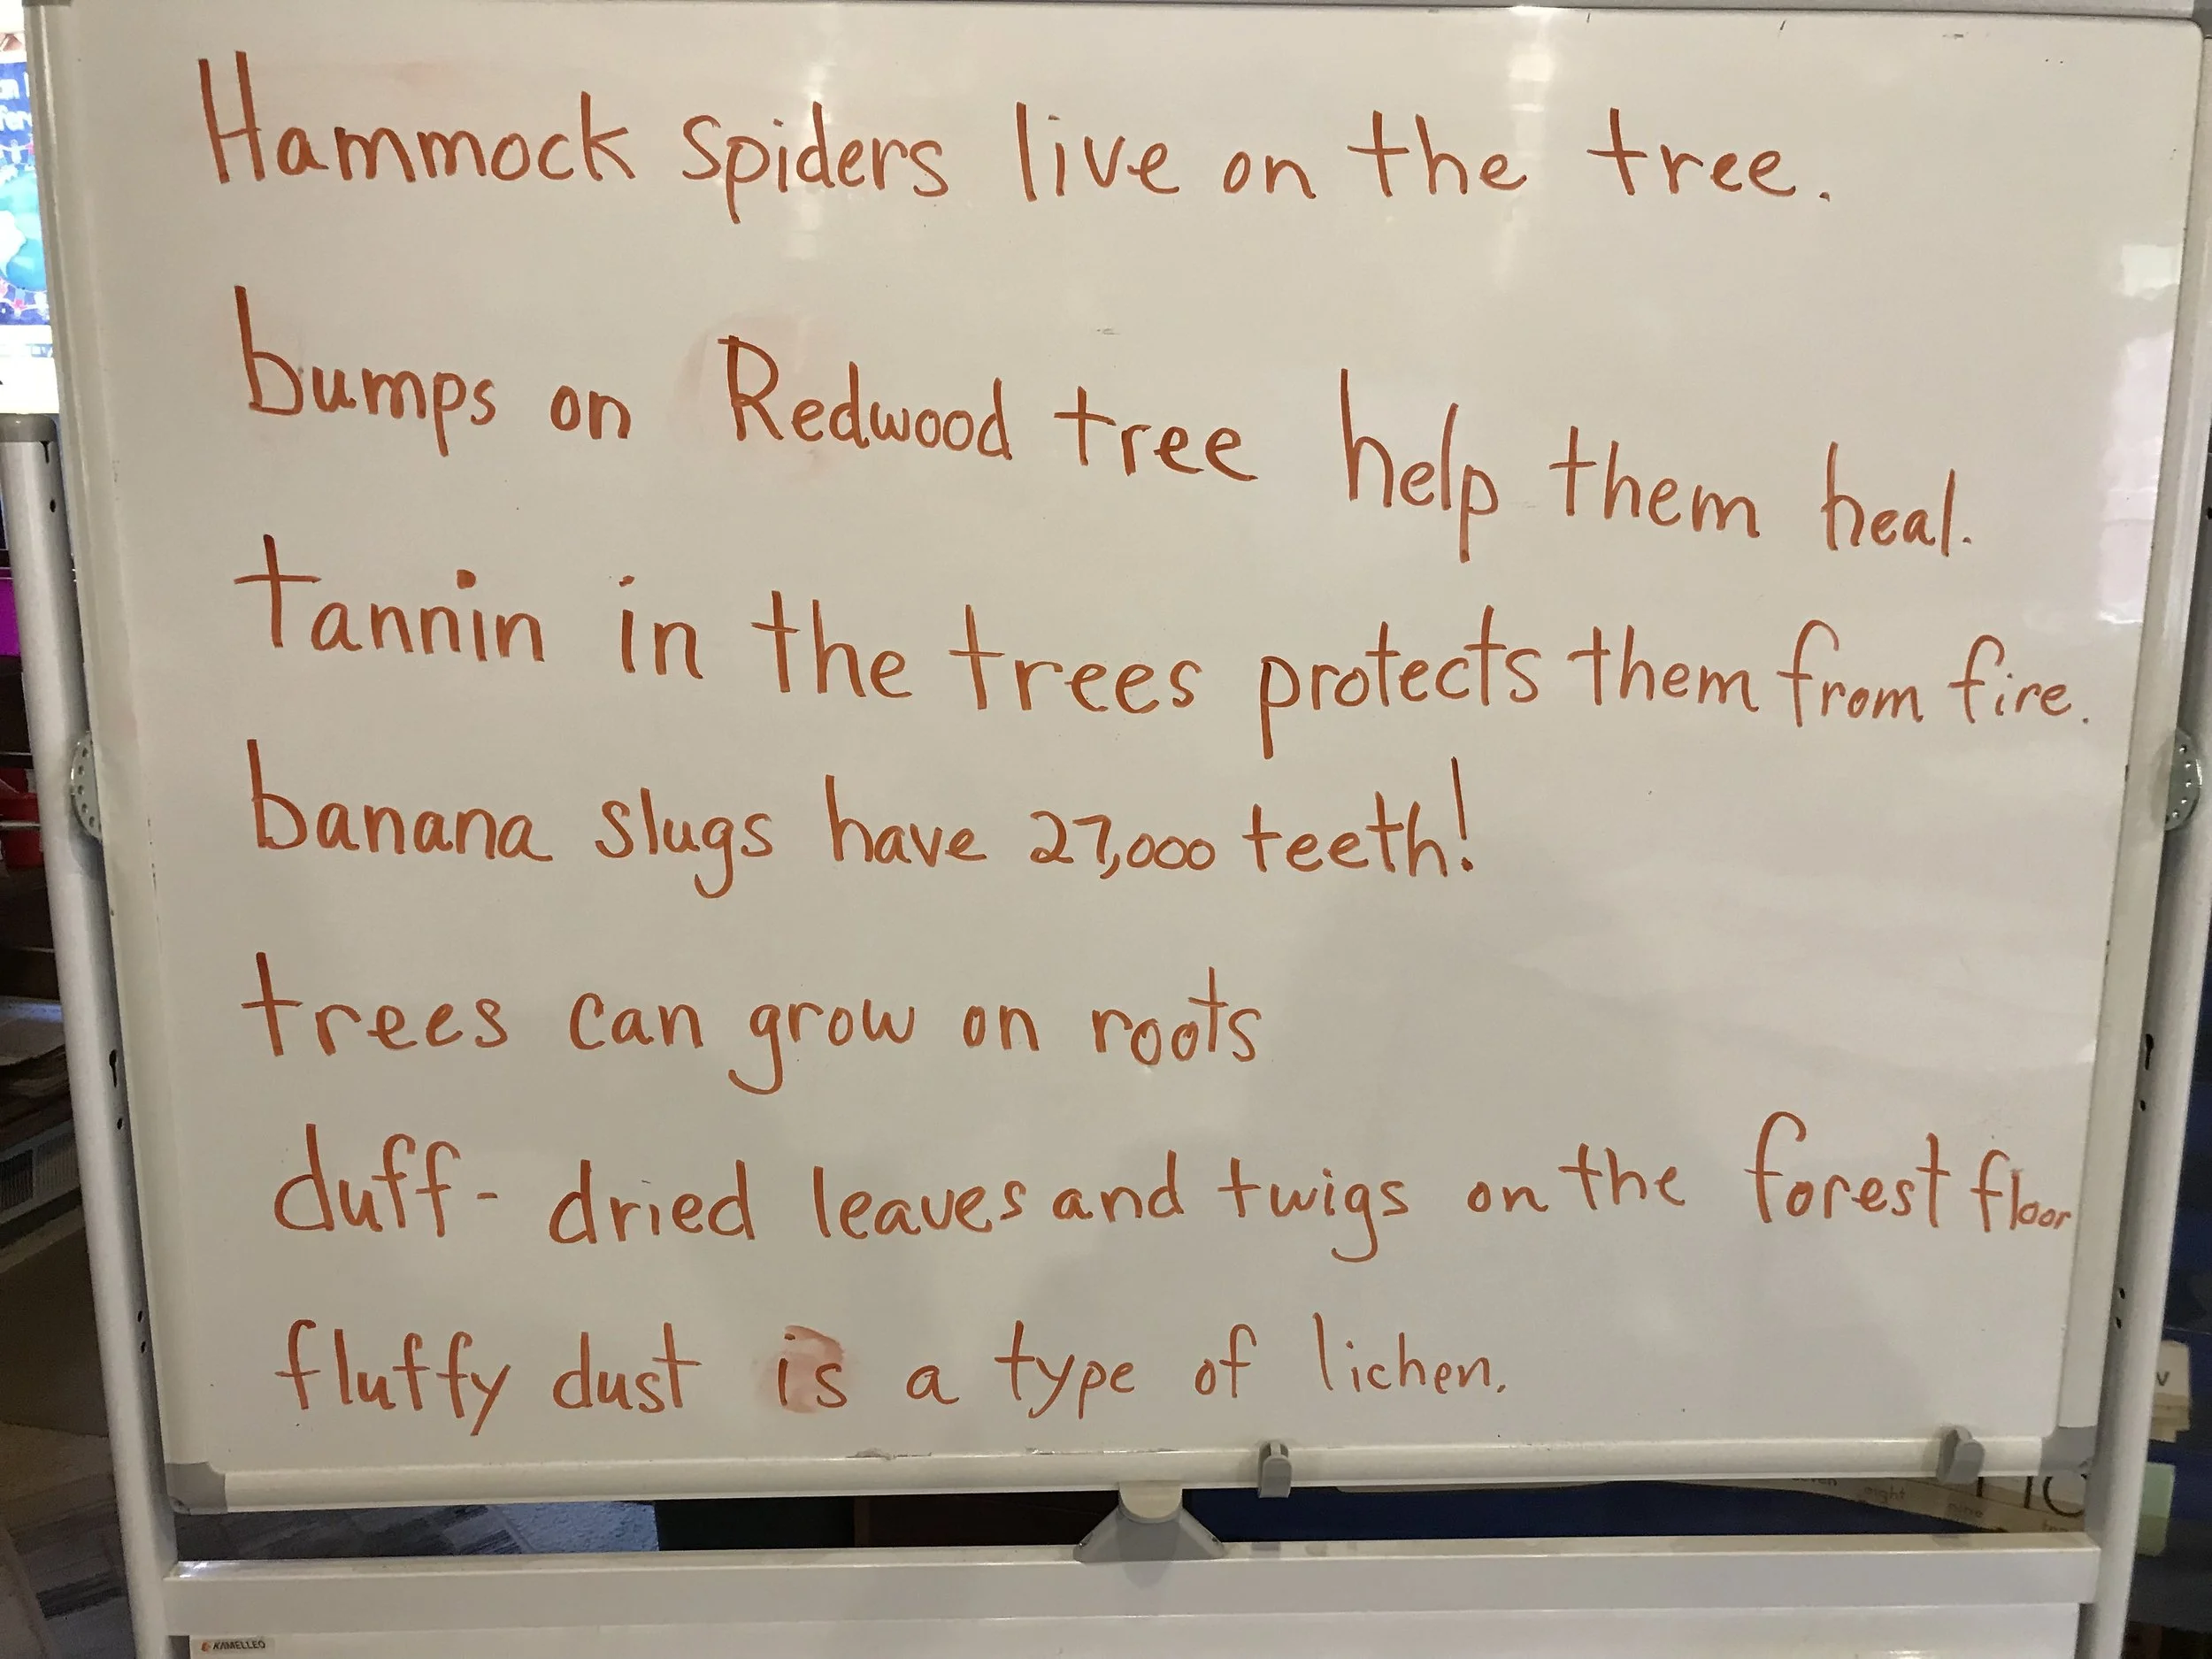 Hammock spiders live on the tree.
bumps on Redwood tree help them heal.
tannin in the trees protects them from fire.
banana slugs have 27,000 teeth!
trees can grow on roots
duff- dried leaves and twigs on the forest floor
fluffy dust is a type of lichen.
KAMELLEO